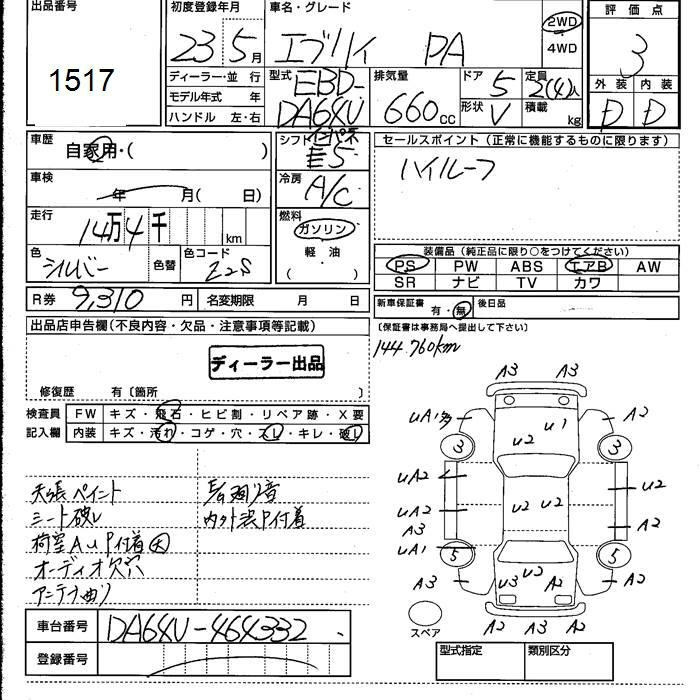 出品番号
1517
初度登録年月
23年5月
車名・グレード
エブリイ PA
2WD
4WD
評価点
3
外装 内装
D D
ディーラー・並行
モデル年式 年
ハンドル 左・右
型式
EBD-
DA64V
排気量
660cc
ドア 5
形状 V
定員 2(4)人
積載 kg
車歴
自家用・( )
車検
年 月( 日)
走行
14万4千 km
色
シルバー
色替
色コード
Z2S
シフト
インパネ
E5
冷房
A/C
燃料
ガソリン
軽油
( )
セールスポイント(正常に機能するものに限ります)
ハイルーフ
装備品(純正品に限り○をつけてください)
PS PW ABS エアB AW
SR ナビ TV カワ
R券 9,310円 名変期限 月 日
新車保証書 有・無 後日品
(保証書は事務局へ提出して下さい)
144.760km
出品店申告欄(不良内容・欠品・注意事項等記載)
ディーラー出品
修復歴 有〔箇所 〕
検査員
記入欄
FW キズ・飛石・ヒビ割・リペア跡・X要
内装 キズ・汚れ・コゲ・穴・スレ・キレ・破レ
天張ペイント
シート破レ
荷室AUP付着大
オーディオ欠穴
アンテナ曲リ
内外装P付着
A3 A3
UA1多 A3
3 3
U2 U1
UA2 U2
UA2 U2 U2 A2
A3
UA1
5 5
A3 U3 U2 A2 A2
A2 A3 A2
スペア
車台番号 DA64V-464332
登録番号
型式指定 類別区分